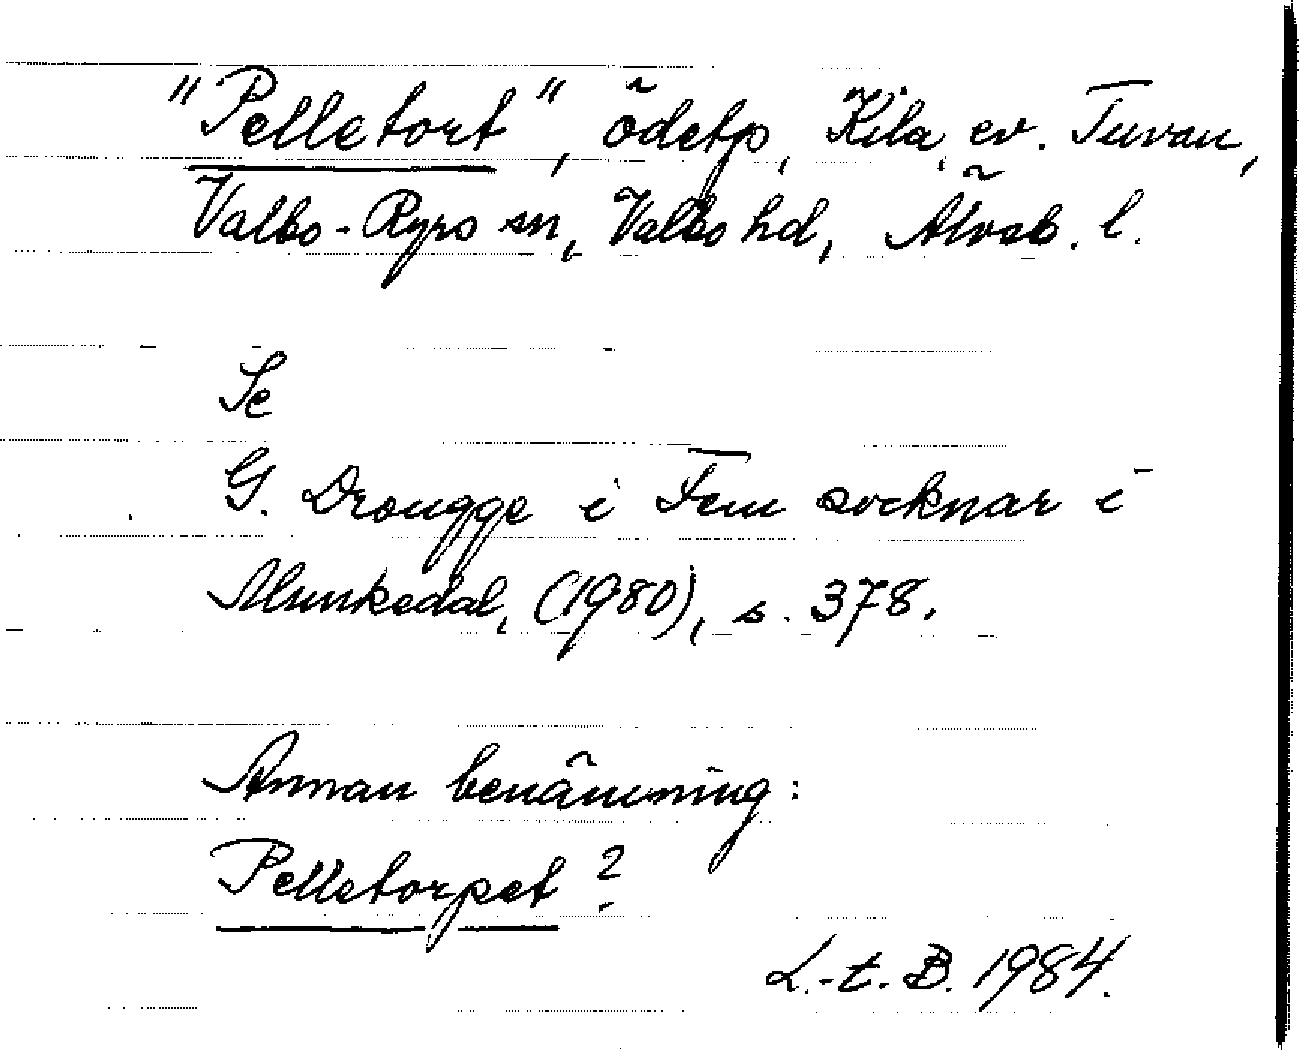 "Pelletort", ödetp, Kila, ev. Tuvan,
Valbo-Ryrs sn, Valbo hd, Älvsb. l.
Se
G. Drougge i Fem socknar i
Munkedal, (1980), s. 378.
Annan benämning:
Pelletorpet?
L.-t. B. 1984.